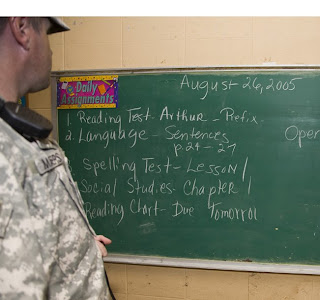 Daily
Assignments
August 26, 2005
1. Reading Test- Arthur - Prefix
2. Language - Sentences
p. 24 - 27
Spelling Test - Lesson 1
Social Studies- Chapter 1
Reading Chart- Due Tomorrow
Open